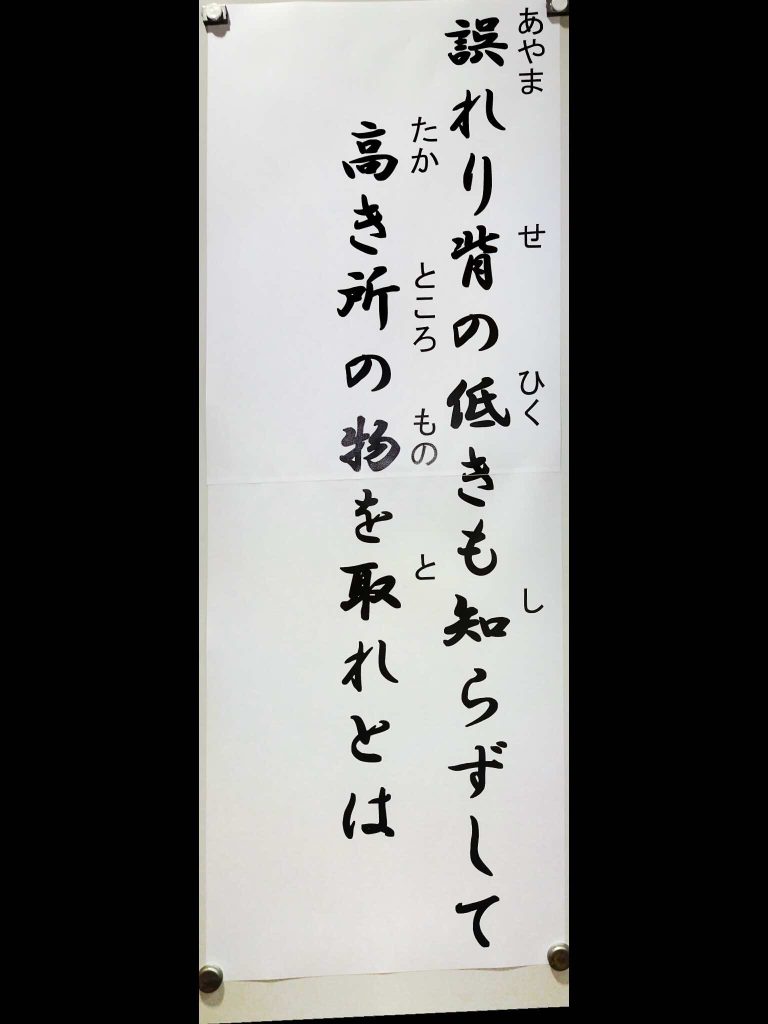 あやま せ ひく し
誤れり背の低きも知らずして
たか ところ もの と
高き所の物を取れとは